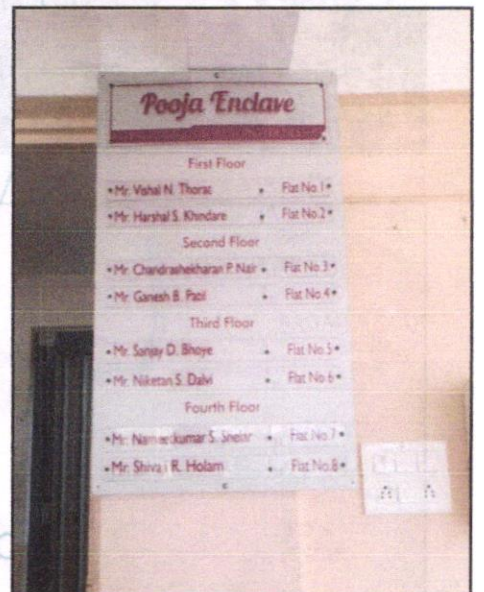 Pooja Enclave
First Floor
• Mr. Vishal N. Thorat • Flat No.1 •
• Mr. Harshal S. Khindare • Flat No.2 •
Second Floor
• Mr. Chandrashekharan P. Nair • Flat No.3 •
• Mr. Ganesh B. Patil • Flat No.4 •
Third Floor
• Mr. Sanjay D. Bhoye • Flat No.5 •
• Mr. Niketan S. Dalvi • Flat No.6 •
Fourth Floor
• Mr. S. • Flat No.7 •
• Mr. R. Holam • Flat No.8 •